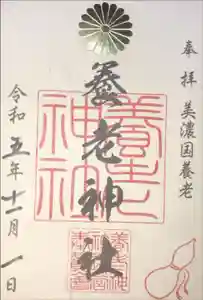 奉拝 美濃国養老
養老神社
養老神社
令和五年十二月一日